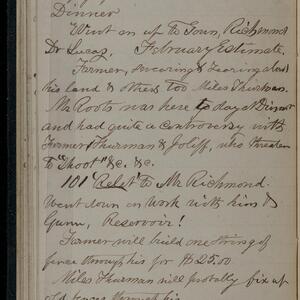 Dinner
Went on up to Town, Richmond
Dr Lucas, February Estimate.
Farmer, swearing & tearing about
his land & others too Miles Thurman.
Mr Roots was here to day at Dinner
and had quite a controversy with
Farmer, Thurman & Joliff, who threaten
to "Shoot" &c. &c.
101 to Mr Richmond.
Went down on work with him &
Gunn, Reservoir!
Farmer will build one string of
fence through his for $25.00
Miles Thurman will probably fix up
old fences through his